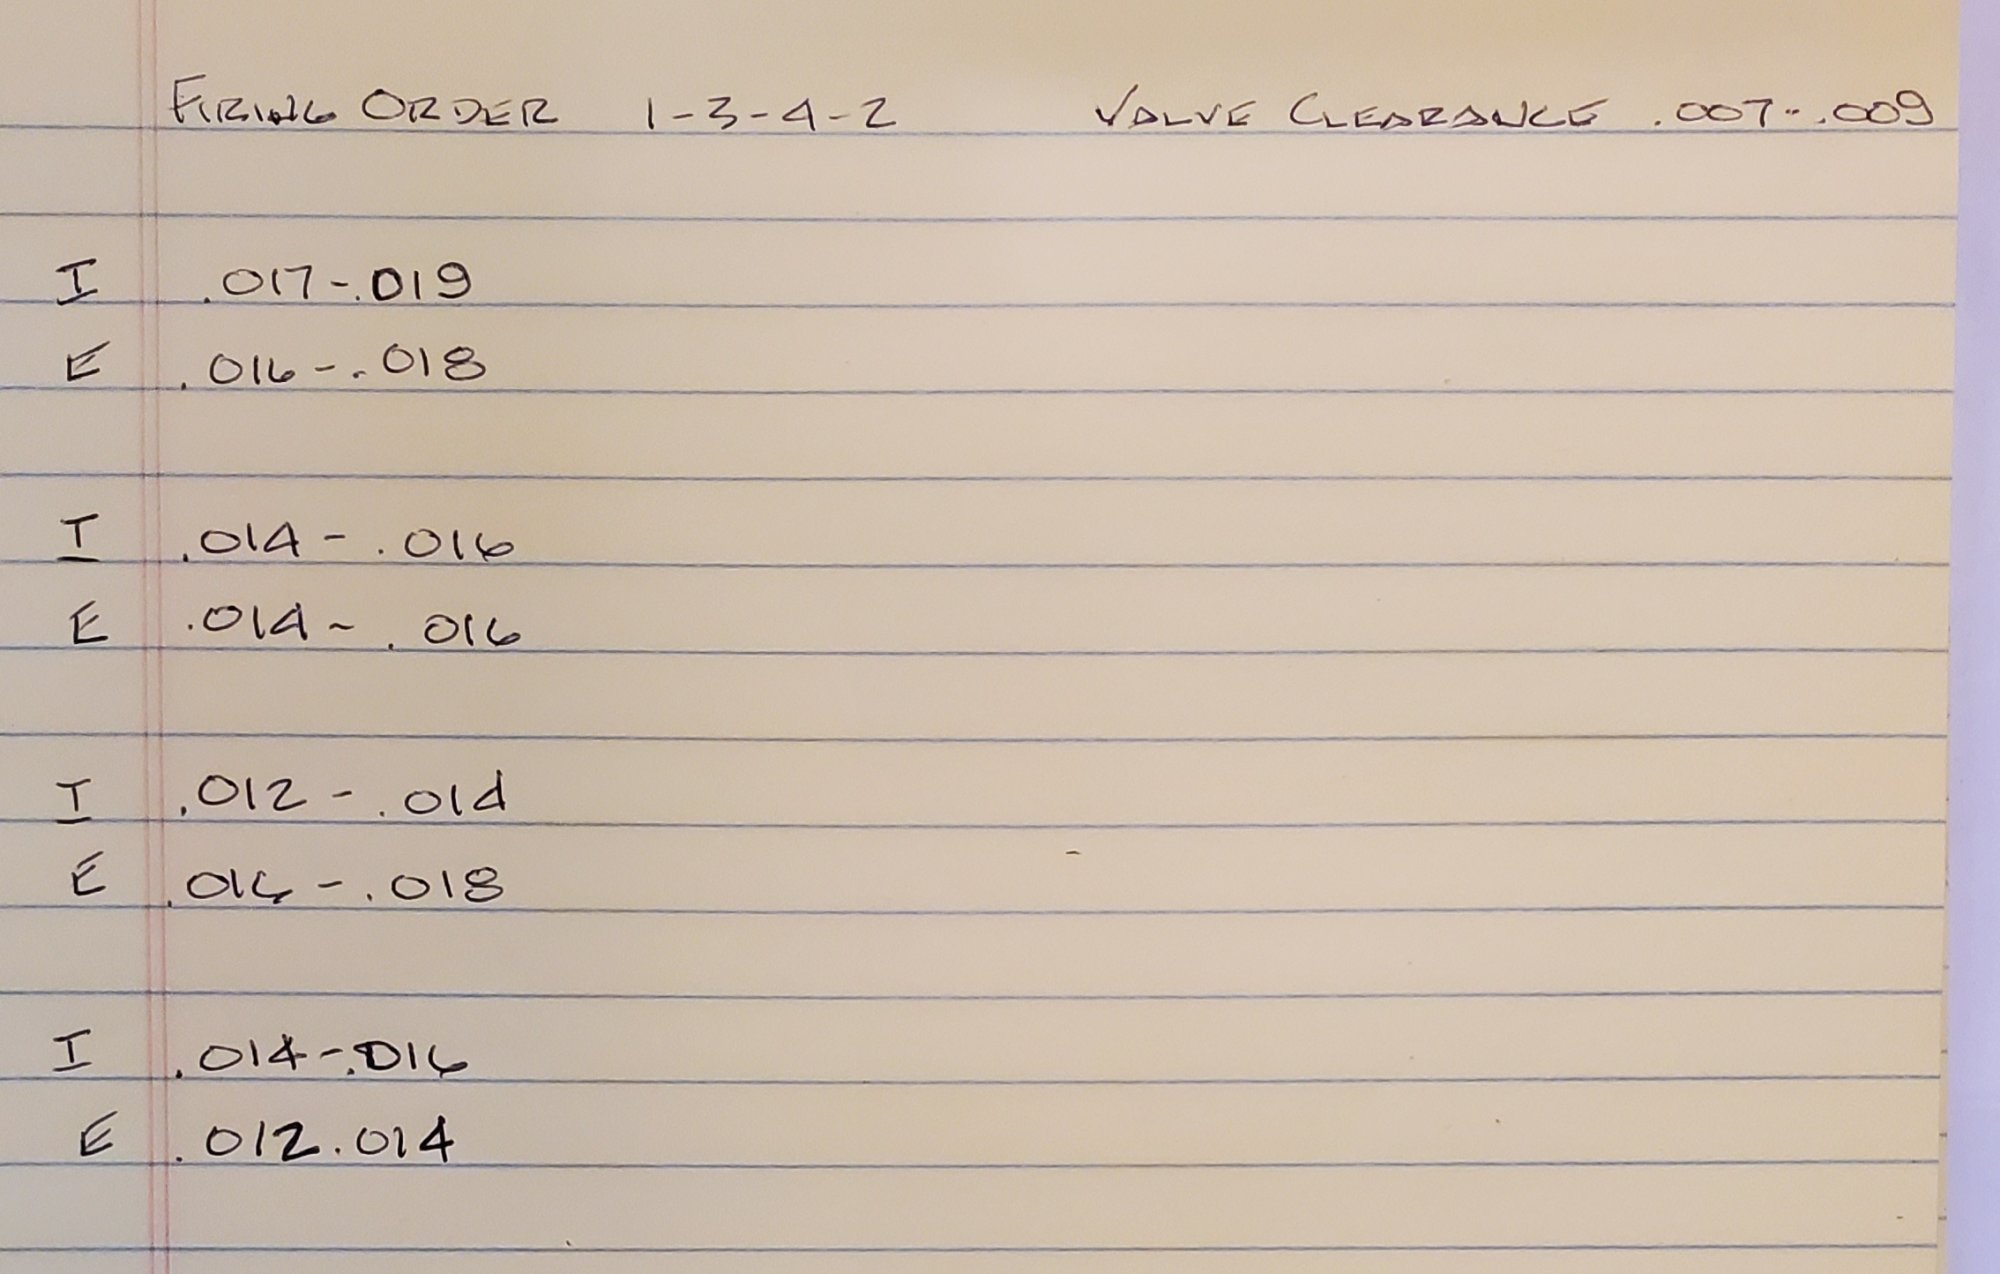 FIRING ORDER 1-3-4-2 VALVE CLEARANCE .007-.009
I .017-.019
E .016-.018
I .014-.016
E .014-.016
I .012-.014
E .016-.018
I .014-.016
E .012.014